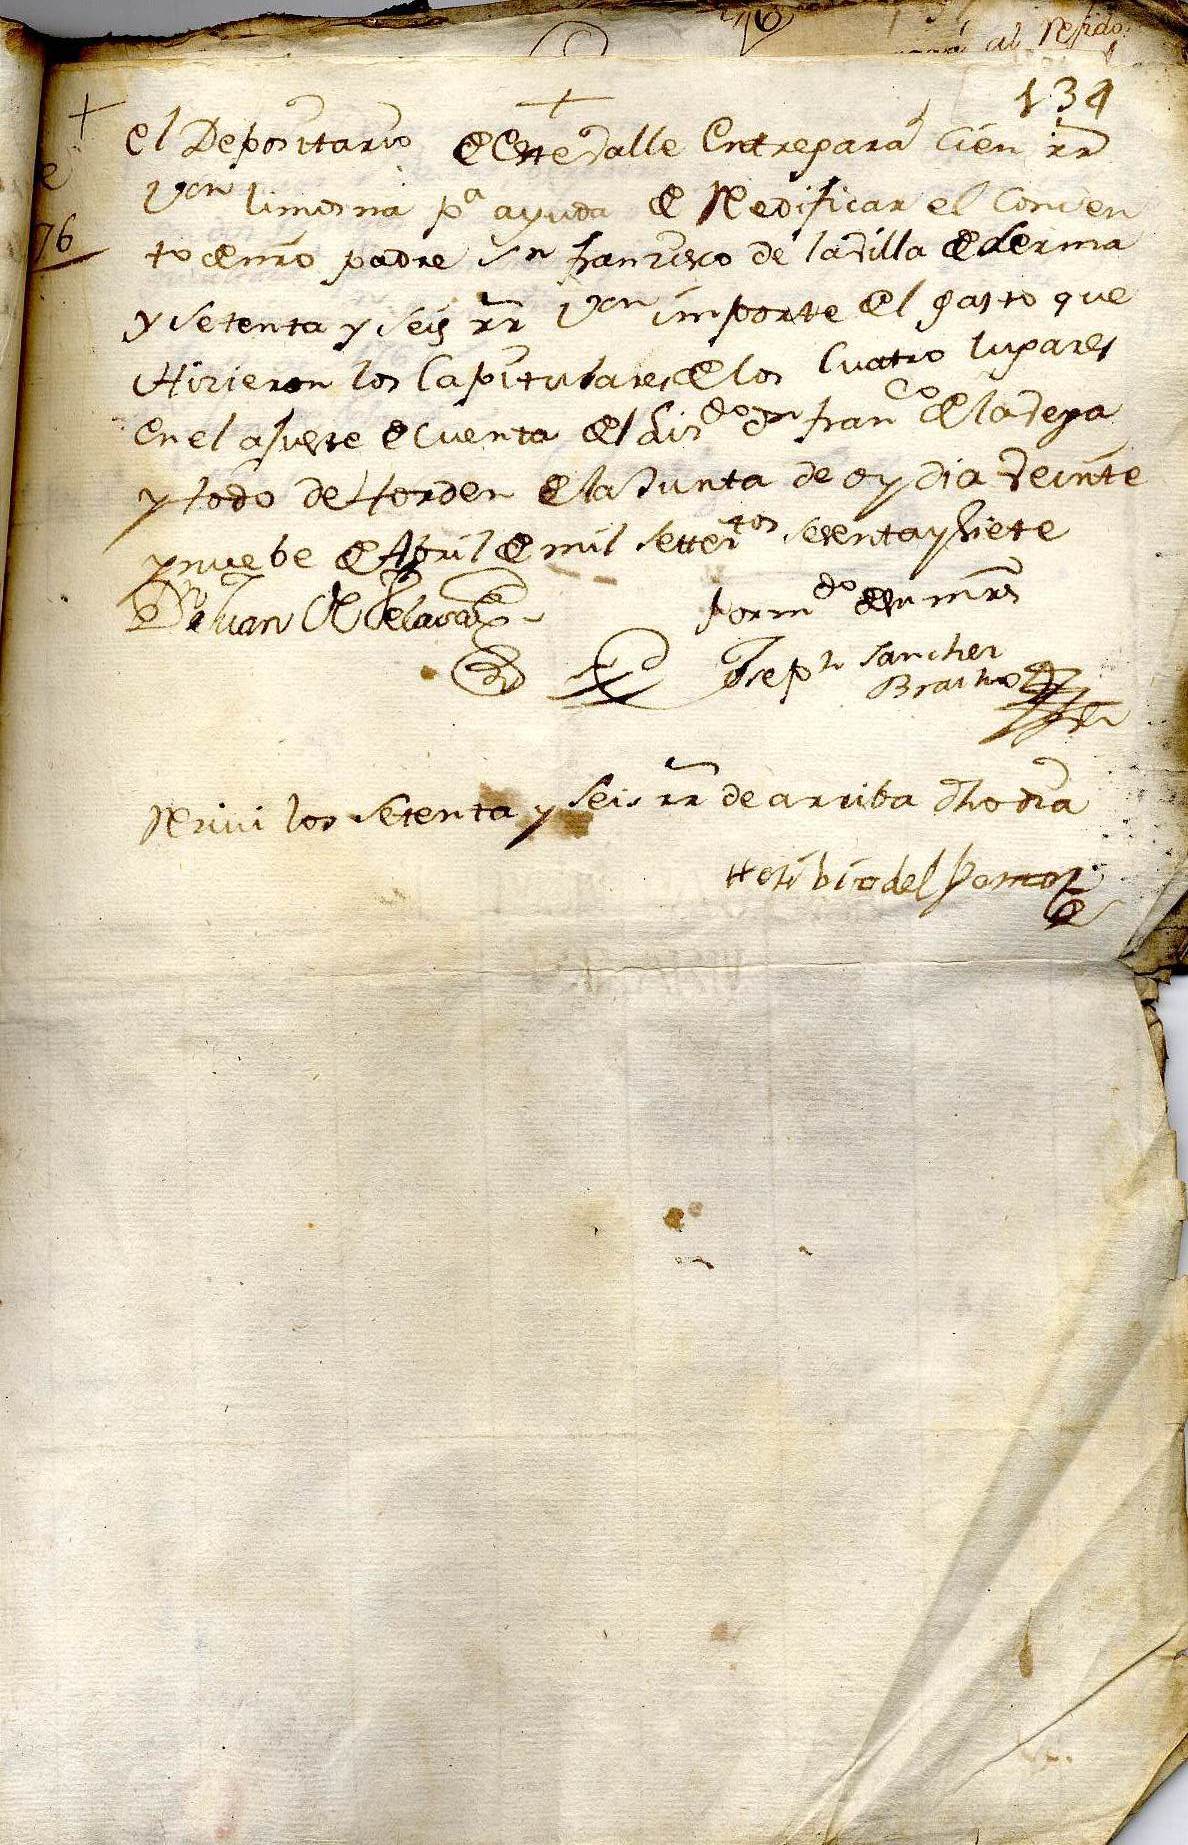 al Rfido
134
el Depositario de este Valle Entregará Cien rr
Von limosna pa ayuda de Redificar el Conven
to de nro padre Sn franzisco de la Villa de Lerma
y setenta y seis rr Von importe del gasto que
Hizieron los Capitulares de los Cuatro lugares
En el ajuste de Cuenta del Lizdo dn franco de la Vega
y todo de Horden de la Junta de oy dia Veinte
y nuebe de Abril de mil settetos sesenta y siete
Dn Juan
Por mdo de su mrs
Joseph Sanchez
76
Rezivi los setenta y seis rr de arriba dho dia
ttoribio del